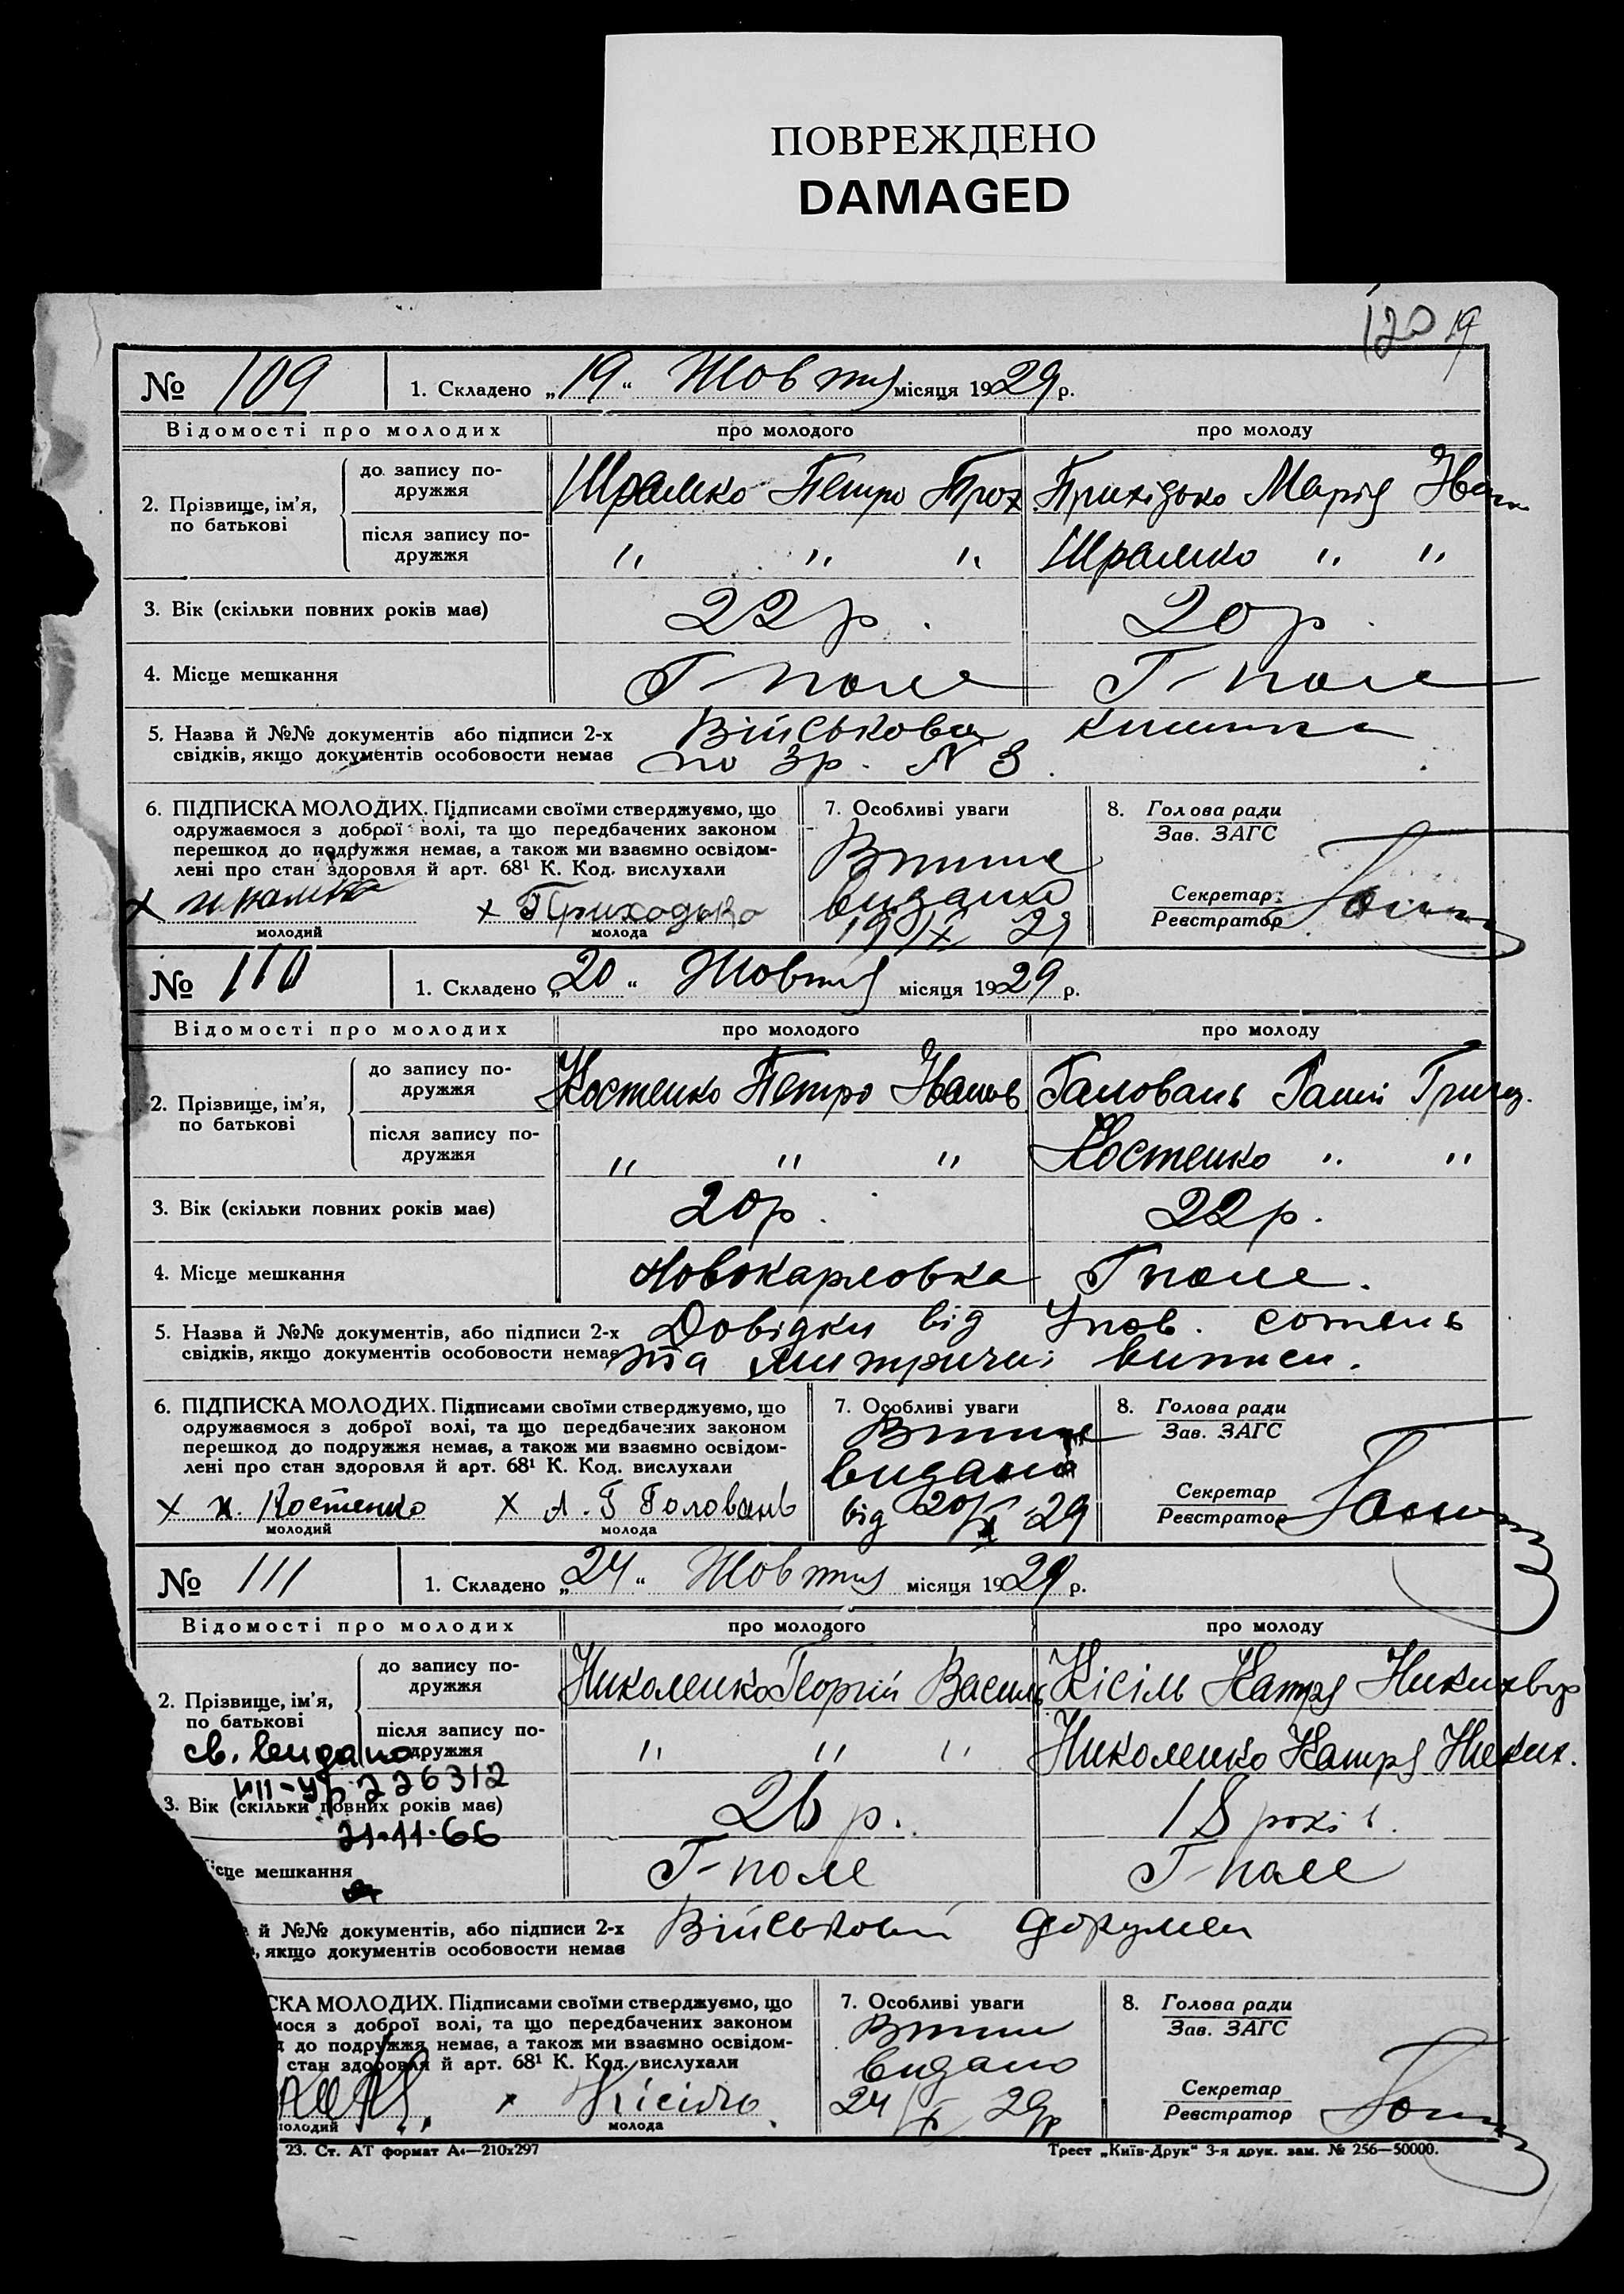 ПОВРЕЖДЕНО
DAMAGED
120 19
№ 109 1. Складено „19“ Жовтня місяця 1929 р.
Відомості про молодих про молодого про молоду
2. Прізвище, ім’я, по батькові
до запису подружжя Шрамко Петро Прох Прихідько Марія Іван
після запису подружжя " " " Шрамко " "
3. Вік (скільки повних років має) 22 р. 20 р.
4. Місце мешкання Г-поле Г-поле
5. Назва й №№ документів або підписи 2-х Військова книжка
свідків, якщо документів особовости немає по Зр. N 3.
6. ПІДПИСКА МОЛОДИХ. Підписами своїми стверджуємо, що
одружаємося з доброї волі, та що передбачених законом
перешкод до подружжя немає, а також ми взаємно освідом-
лені про стан здоровля й арт. 68¹ К. Код. вислухали
х шрамко х Приходько
молодий молода
7. Особливі уваги
Витяг
видано
19/X 29
8. Голова ради
Зав. ЗАГС
Секретар
Реєстратор
№ 110 1. Складено „20“ Жовтня місяця 1929 р.
Відомості про молодих про молодого про молоду
2. Прізвище, ім’я, по батькові
до запису подружжя Костенко Петро Іванов Головань Ганни Григ.
після запису подружжя " " " Костенко " "
3. Вік (скільки повних років має) 20 р. 22 р.
4. Місце мешкання Новокарловка Г поле.
5. Назва й №№ документів, або підписи 2-х Довідки від Упов. сотень
свідків, якщо документів особовости немає та митричні виписи.
6. ПІДПИСКА МОЛОДИХ. Підписами своїми стверджуємо, що
одружаємося з доброї волі, та що передбачених законом
перешкод до подружжя немає, а також ми взаємно освідом-
лені про стан здоровля й арт. 68¹ К. Код. вислухали
х п. Костенко х Г Головань
молодий молода
7. Особливі уваги
Витяг
видано
від 20/X 29
8. Голова ради
Зав. ЗАГС
Секретар
Реєстратор
№ 111 1. Складено „24“ Жовтня місяця 1929 р.
Відомості про молодих про молодого про молоду
2. Прізвище, ім’я, по батькові
до запису подружжя Николенко Георгій Василь Кісіль Катря Никихвор
після запису подружжя " " " Николенко Катря Никих.
св. видано
226312
21·11·66
3. Вік (скільки повних років має) 26 р. 18 років.
ісце мешкання Г-поле Г-поле
й №№ документів, або підписи 2-х Військовий докумен
, якщо документів особовости немає
СКА МОЛОДИХ. Підписами своїми стверджуємо, що
мося з доброї волі, та що передбачених законом
д до подружжя немає, а також ми взаємно освідом-
стан здоровля й арт. 68¹ К. Код. вислухали
х Кісіль
молодий молода
7. Особливі уваги
Витяг
видано
24/X 29р
8. Голова ради
Зав. ЗАГС
Секретар
Реєстратор
23. Ст. АТ формат А₄—210x297 Трест „Київ-Друк“ 3-я друк. зам. № 256—50000.